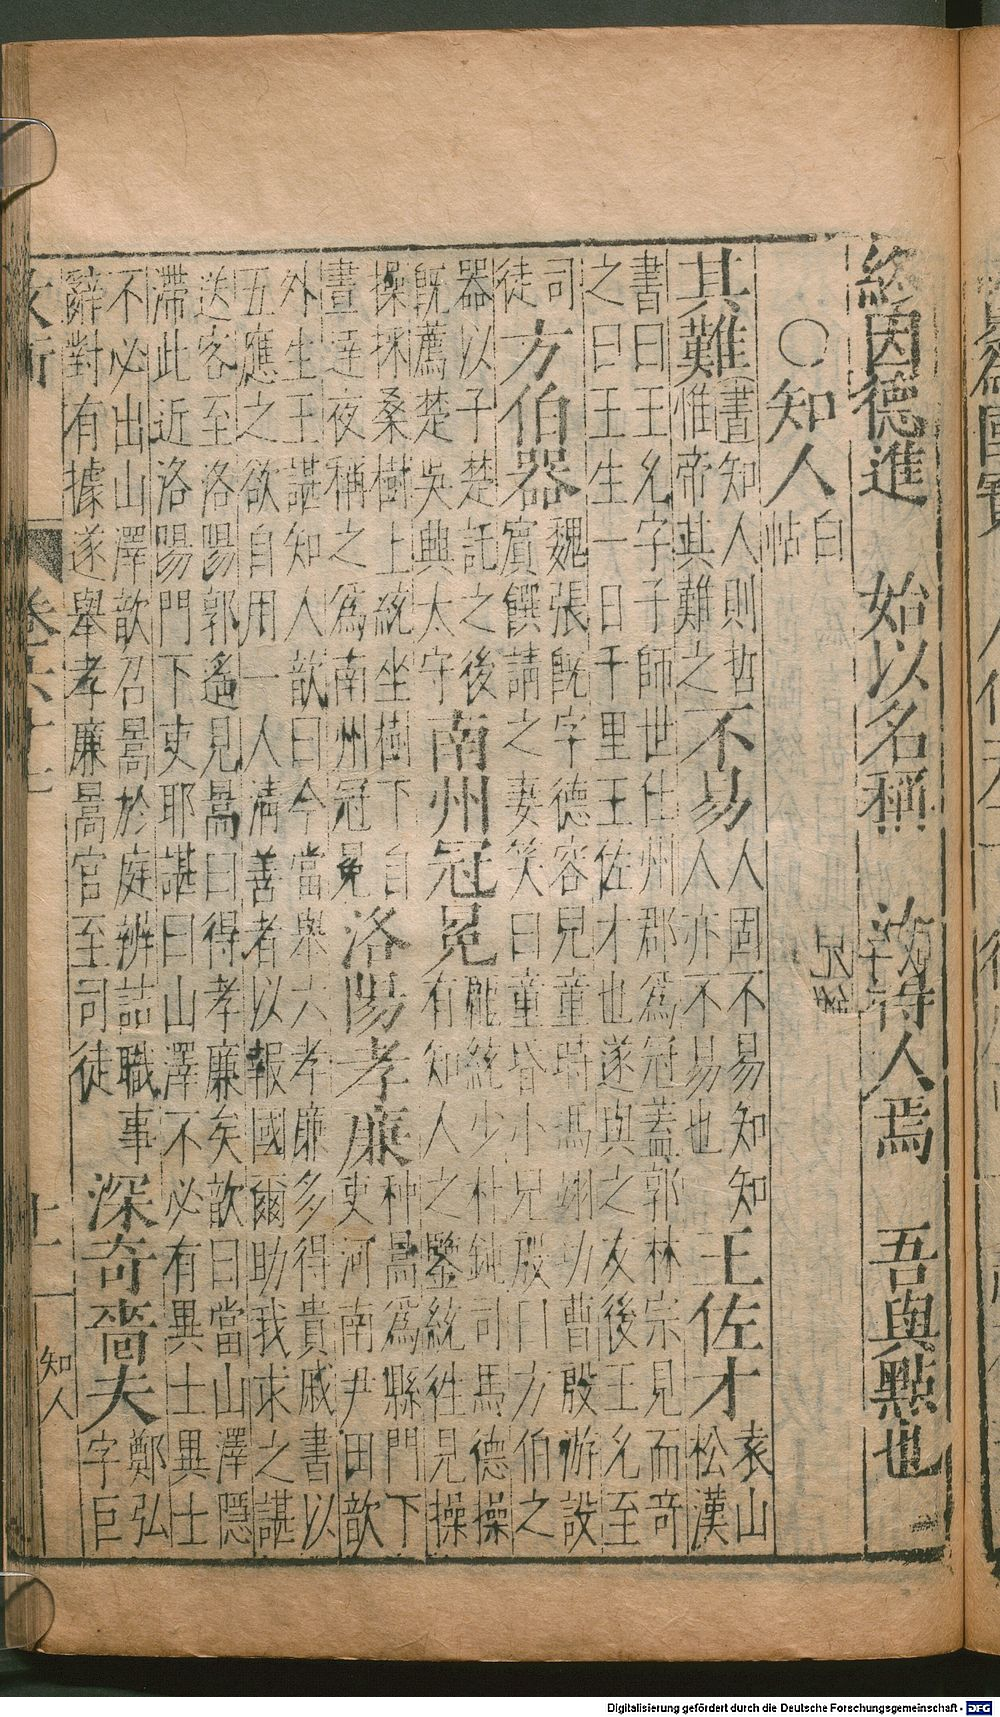 終因德進 始以名稱 汝待人焉 吾與點也
○知人
白
帖
其難
書知人則哲
惟帝其難之
不易
人固不易知知
人亦不易也
王佐才
袁山
松漢
書曰王允字子師世仕州郡爲冠蓋郭林宗見而奇
之曰王生一日千里王佐才也遂與之友後王允至
司
徒
方伯器
魏張旣字德容兒童時馮翊功曹殷游設
賓饌請之妻笑曰童昏小兒殷曰方伯之
器以子楚託之後
旣薦楚吳興太守
南州冠冕
龐統少朴鈍司馬德操
有知人之鑒統徃見操
操採桑樹上統坐樹下自
晝達夜稱之爲南州冠冕
洛陽孝廉
种暠爲縣門下
吏河南尹田歆
外生王諶知人歆曰今當舉六孝廉多得貴戚書以
五應之欲自用一人清善者以報國爾助我求之諶
送客至洛陽郭遙見暠曰得孝廉矣歆曰當山澤隱
滯此近洛陽門下吏耶諶曰山澤不必有異士異士
不必出山澤歆召暠於庭辨詰職事
辭對有據遂舉孝廉暠官至司徒
深奇嗇夫
鄭弘
字巨
十一
知人
Digitalisierung gefördert durch die Deutsche Forschungsgemeinschaft - DFG